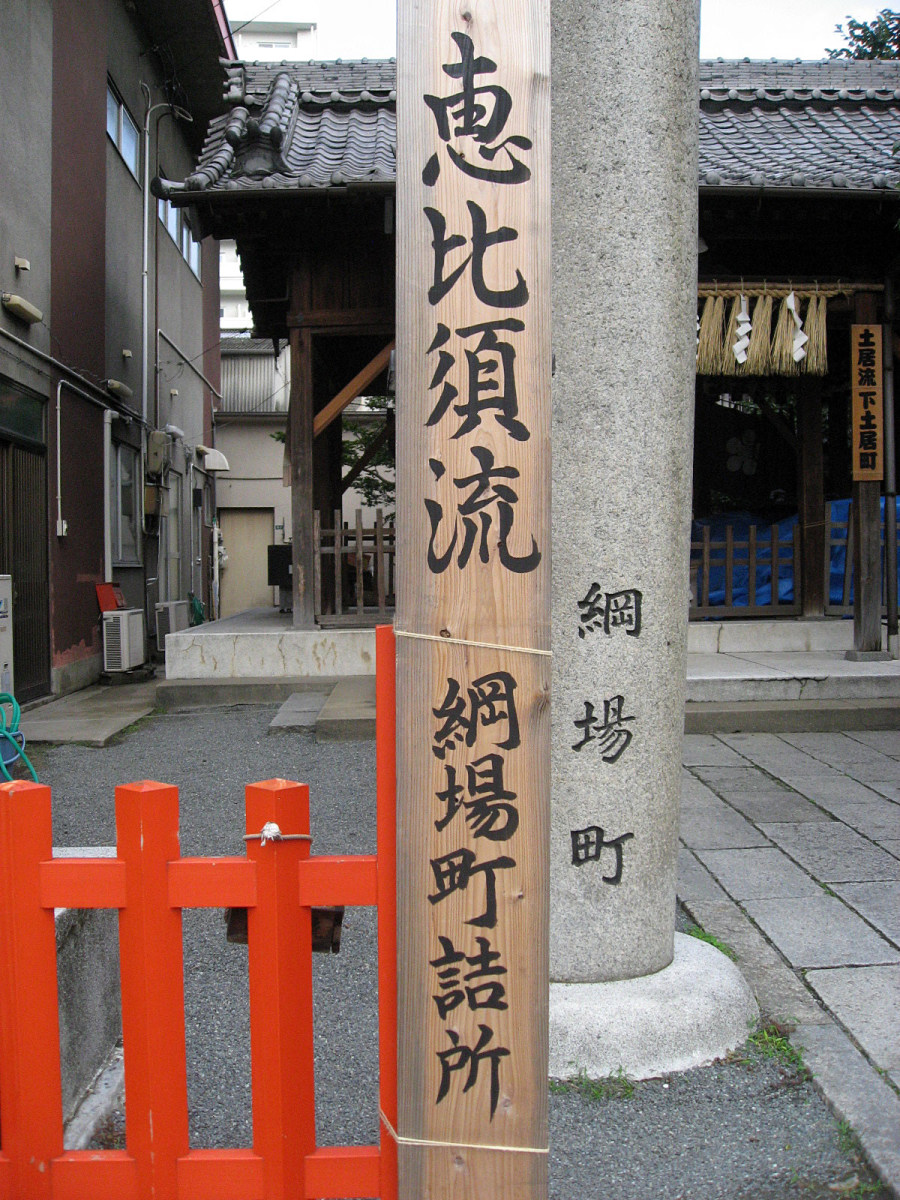 恵比須流
綱場町詰所
綱場町
土居流 下土居町